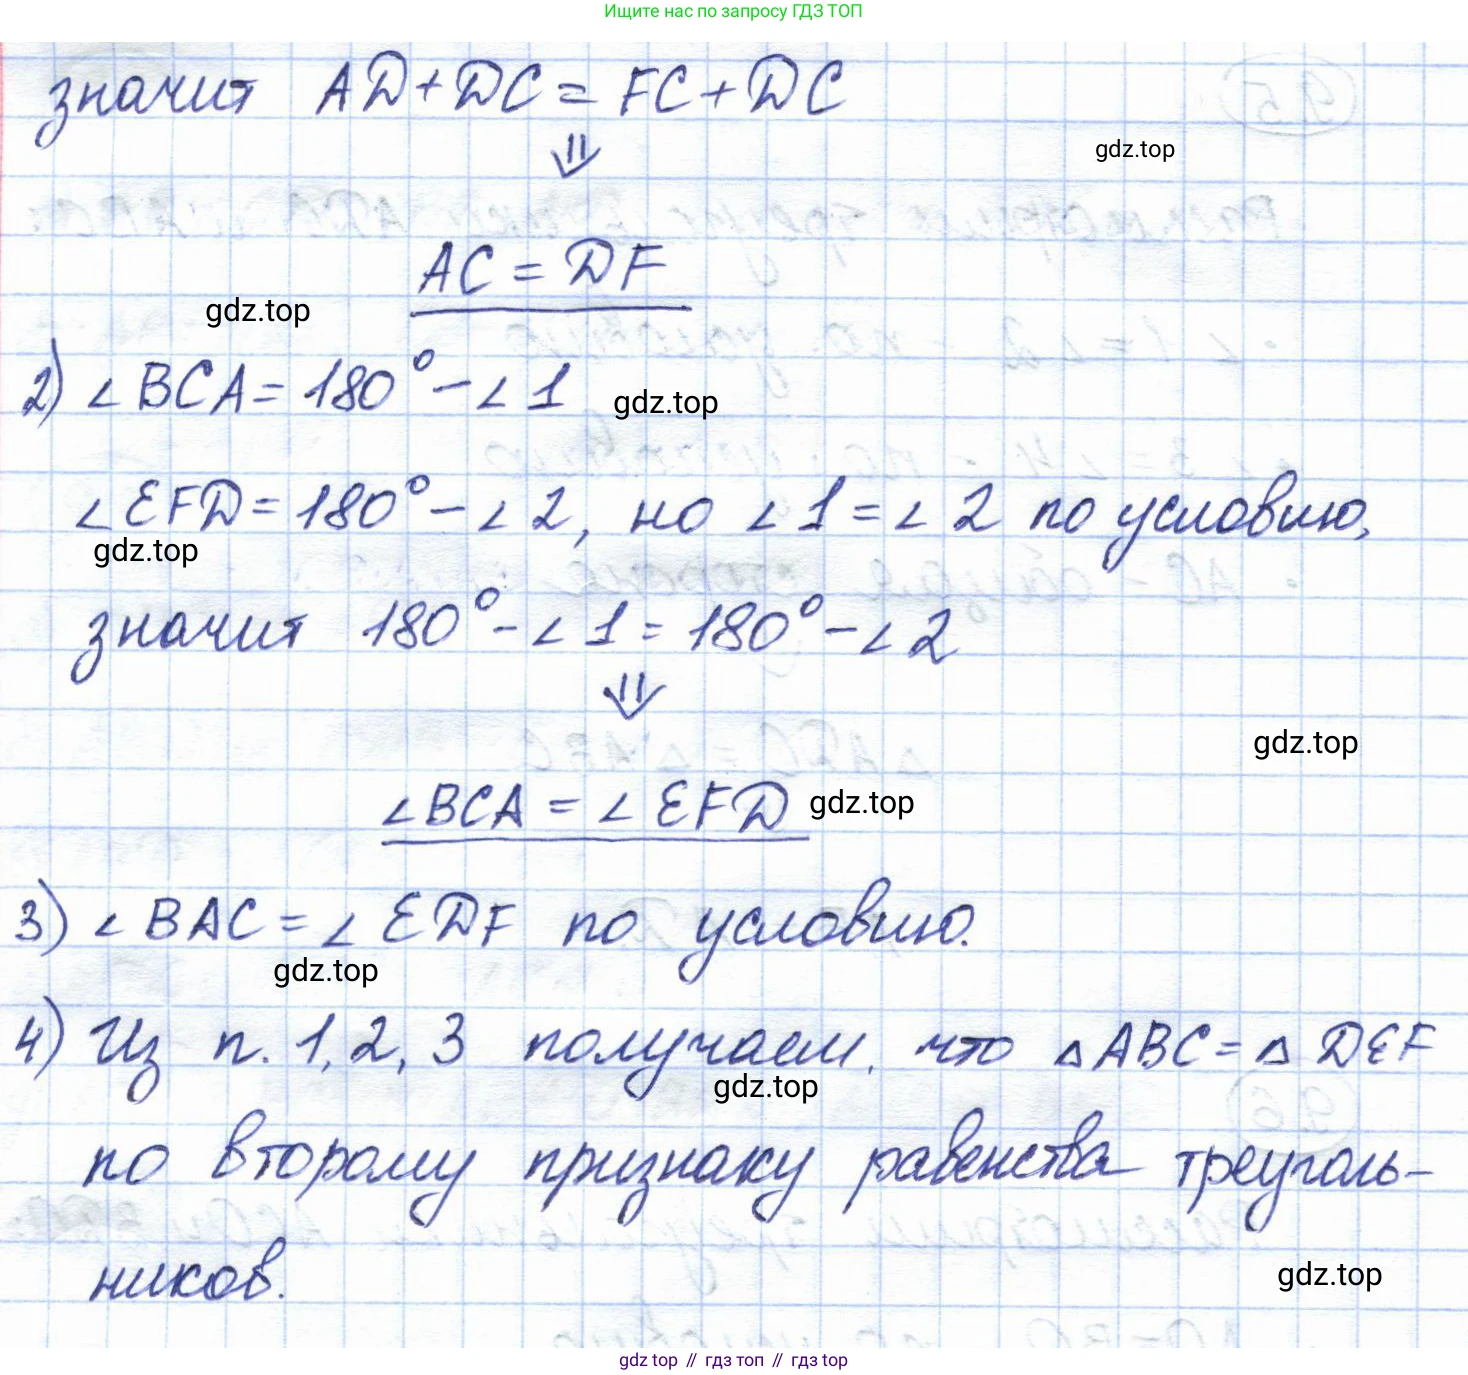 Ищите нас по запросу ГДЗ ТОП
значит AD+DC = FC+DC
⇓
gdz.top
AC = DF
gdz.top
2) ∠BCA = 180° - ∠1
gdz.top
∠EFD = 180° - ∠2, но ∠1 = ∠2 по условию,
gdz.top
значит 180° - ∠1 = 180° - ∠2
⇓
gdz.top
∠BCA = ∠EFD
gdz.top
3) ∠BAC = ∠EDF по условию.
gdz.top
4) Из п. 1, 2, 3 получаем, что △ABC = △DEF
gdz.top
по второму признаку равенства треуголь-
ников.
gdz.top
gdz top // гдз топ // гдз top